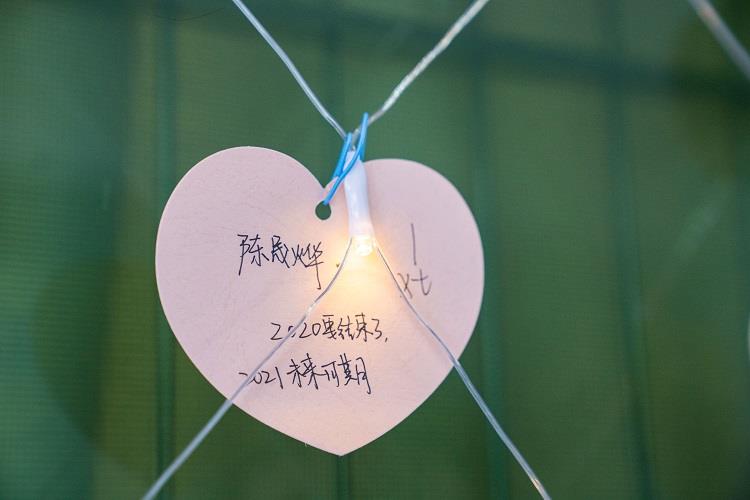 陈晟烨
2020要结束了,
2021未来可期